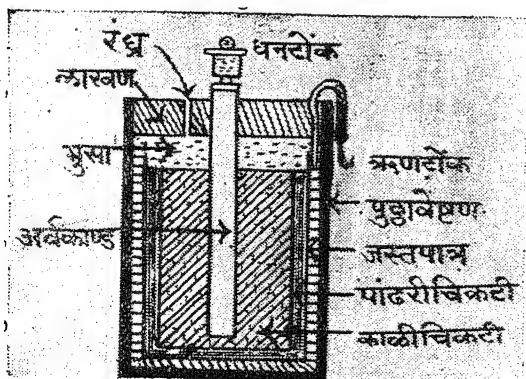 रंध्र
धनटोंक
लाखवण
भुसा
ऋणटोंक
पुठ्ठावेष्टण
अर्वकाण्ड
जस्तपात्र
पांढरीचिकटी
काळीचिकटी